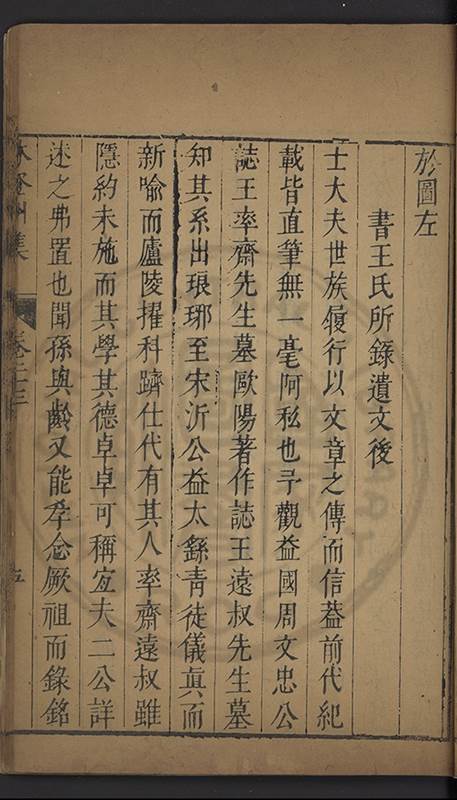 於圖左
書王氏所錄遺文後
士大夫世族履行以文章之傳而信葢前代紀
載皆直筆無一毫阿私也予觀益國周文忠公
誌王率齋先生墓歐陽著作誌王遠叔先生墓
知其系出琅琊至宋沂公益太繇青徒儀眞而
新喻而廬陵擢科躋仕代有其人率齋遠叔雖
隱約未施而其學其德卓卓可稱宜夫二公詳
述之弗置也聞孫與齡又能孝念厥祖而錄銘
集
卷二十三
五